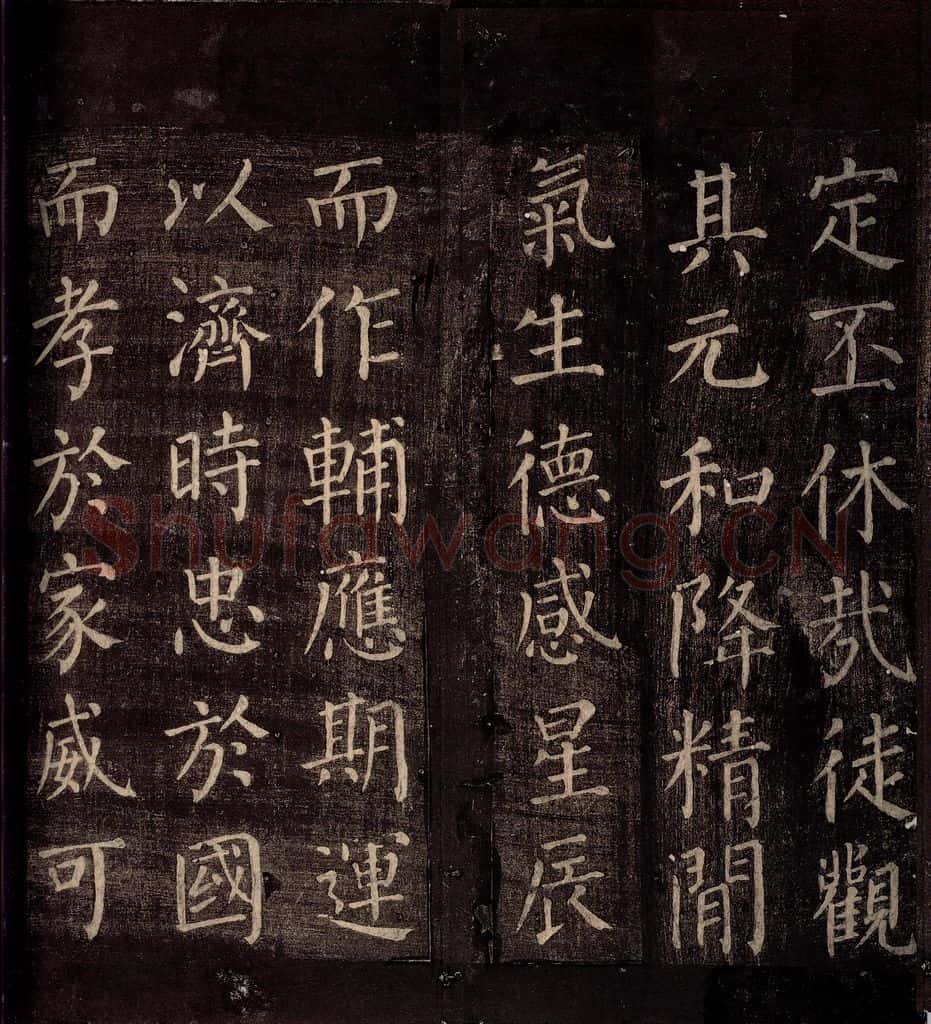 定丕休哉徒觀
其元和降精閒
氣生德感星辰
而作輔應期運
以濟時忠於國
而孝於家威可
Shufawang.CN